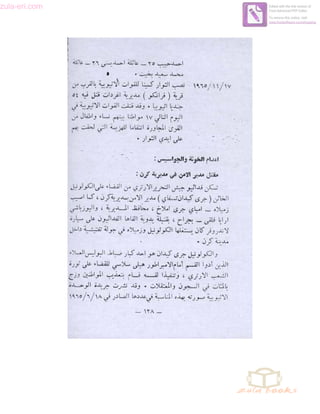 zula-eri.com
احمد حبيب ٢٥ - عائلة احمد بستي ٢٦ - عائلة
محمد سعيد بخيت ٠
١٩٦٥/١١/١٧ نصب الثوار كمينا للقوات الاثيوبية بالقرب من
قرية ( فرانكو ) مديرية اغردات قتل فيه ٥٤
جنديا اثيوبيا ٠ وقد قتلت القوات الاثيوبية في
اليوم التالي ١٧ مواطنا بينهم نساء واطفال من
القرى المجاورة انتقاما للهزيمة التي لحقت بهم
على ايدي الثوار ٠
اعدام الخونة والجواسيس :
مقتل مدير الامن في مديرية كرن :
تمكن فدائيو جيش التحرير الارتري من القضاء على الكولونيل
الخائن ( جري كيدان تسفاي ) مدير الامن بمديرية كرن ، كما اصيب
زميلاه - امباي جري املاخ ، محافظ المديرية ، واليوزباشي
ارايا قلقي - بجراح ، بقنبلة يدوية القاها الفدائيون على سيارة
لاندروفر كان يستقلها الكولونيل وزميلاه في جولة تفتيشية داخل
مدينة كرن ٠
والكولونيل جري كيدان هو احد كبار ضباط البوليس العملاء
الذين أدوا القسم أمام الامبراطور هيلي سلاسي للقضاء على ثورة
الشعب الارتري ، وتنفيذا لقسمه قام بتعذيب المواطنين وزج
بالمئات في السجون والمعتقلات ٠ وقد نشرت جريدة الوحدة
الاثيوبية صورته بهذه المناسبة في عددها الصادر في ١٩٦٥/٦/١٨
- ١٣٨ -